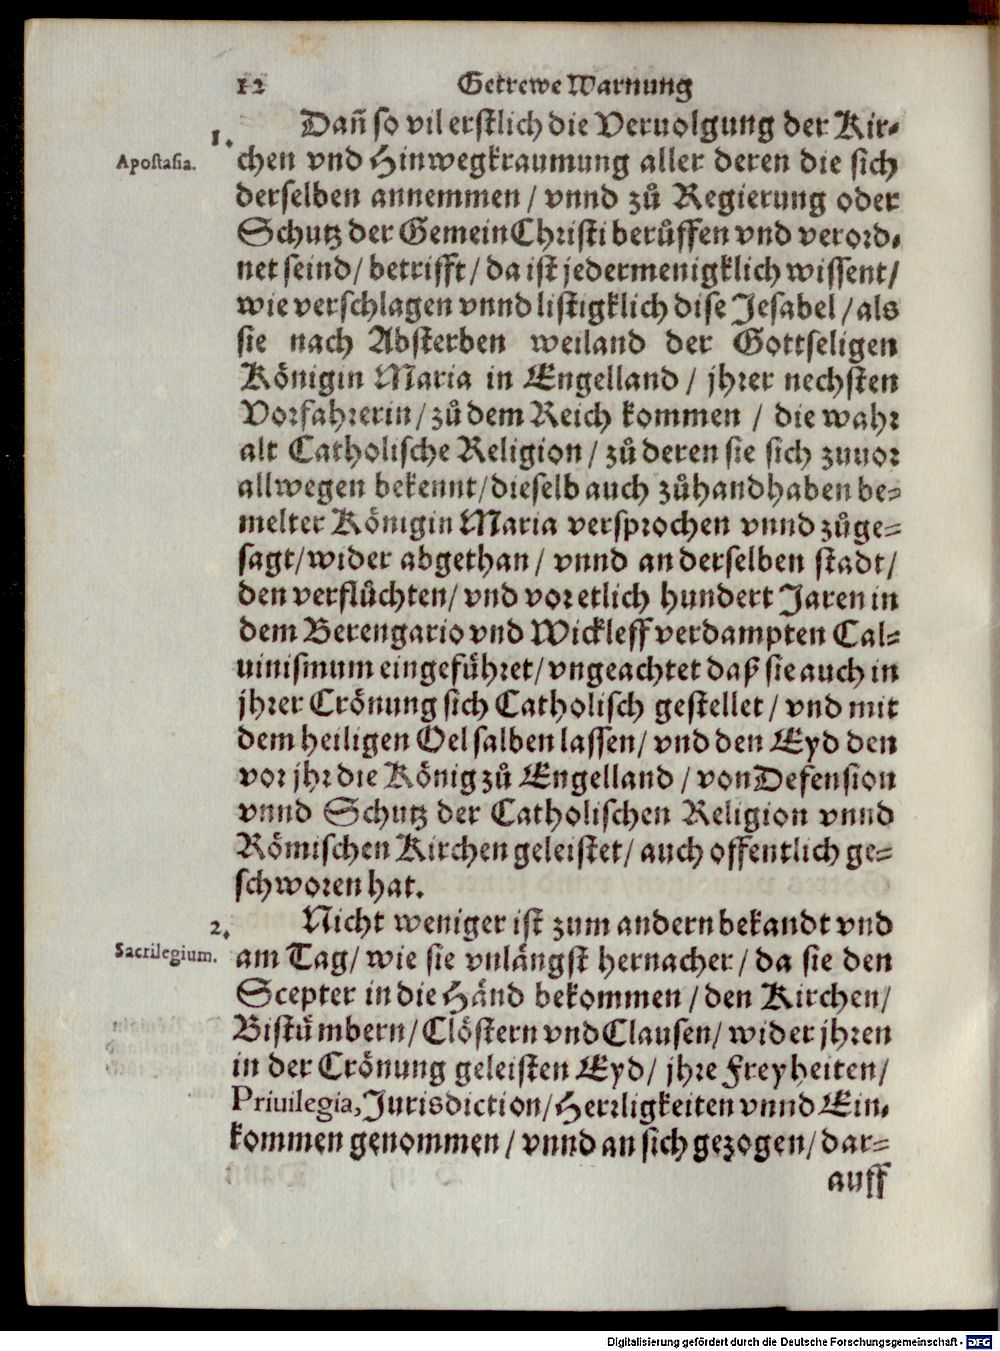 12 Getrewe Warnung
Dañ so vil erstlich die Veruolgung der Kir-
1.
Apostasia.
chen vnd Hinwegkraumung aller deren die sich
derselben annemmen / vnnd zů Regierung oder
Schutz der Gemein Christi berůffen vnd verord-
net seind / betrifft / da ist jedermenigklich wissent /
wie verschlagen vnnd listigklich dise Jesabel / als
sie nach Absterben weiland der Gottseligen
Königin Maria in Engelland / jhrer nechsten
Vorfahrerin / zů dem Reich kommen / die wahr
alt Catholische Religion / zů deren sie sich zuuor
allwegen bekennt / dieselb auch zůhandhaben be-
melter Königin Maria versprochen vnnd zůge-
sagt / wider abgethan / vnnd an derselben stadt /
den verflůchten / vnd vor etlich hundert Jaren in
dem Berengario vnd Wickleff verdampten Cal-
uinismum eingeführet / vngeachtet daß sie auch in
jhrer Crönung sich Catholisch gestellet / vnd mit
dem heiligen Oel salben lassen / vnd den Eyd den
vor jhr die König zů Engelland / von Defension
vnnd Schutz der Catholischen Religion vnnd
Römischen Kirchen geleistet / auch offentlich ge-
schworen hat.
Nicht weniger ist zum andern bekandt vnd
2.
Sacrilegium.
am Tag / wie sie vnlängst hernacher / da sie den
Scepter in die Händ bekommen / den Kirchen /
Bistümbern / Clöstern vnd Clausen / wider jhren
in der Crönung geleisten Eyd / jhre Freyheiten /
Priuilegia, Jurisdiction / Herrligkeiten vnnd Ein-
kommen genommen / vnnd an sich gezogen / dar-
auff
Digitalisierung gefördert durch die Deutsche Forschungsgemeinschaft - DFG